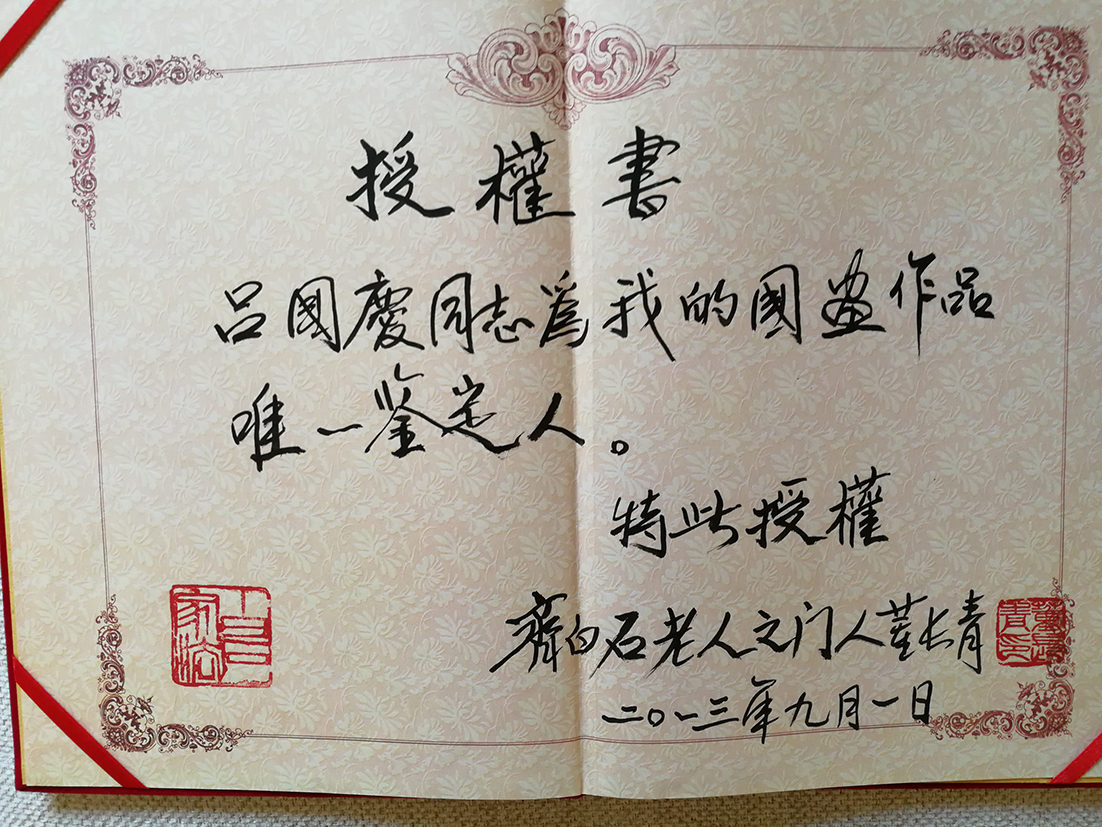 授權書
吕國慶同志爲我的國畫作品
唯一鉴定人。
特此授權
齊白石老人之门人董长青
二〇一三年九月一日
董長青印